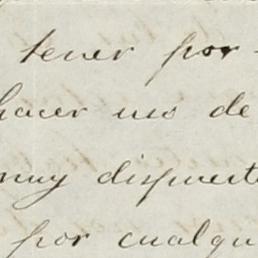 tener por
hacer uso de
muy dispuesto
por cualqu